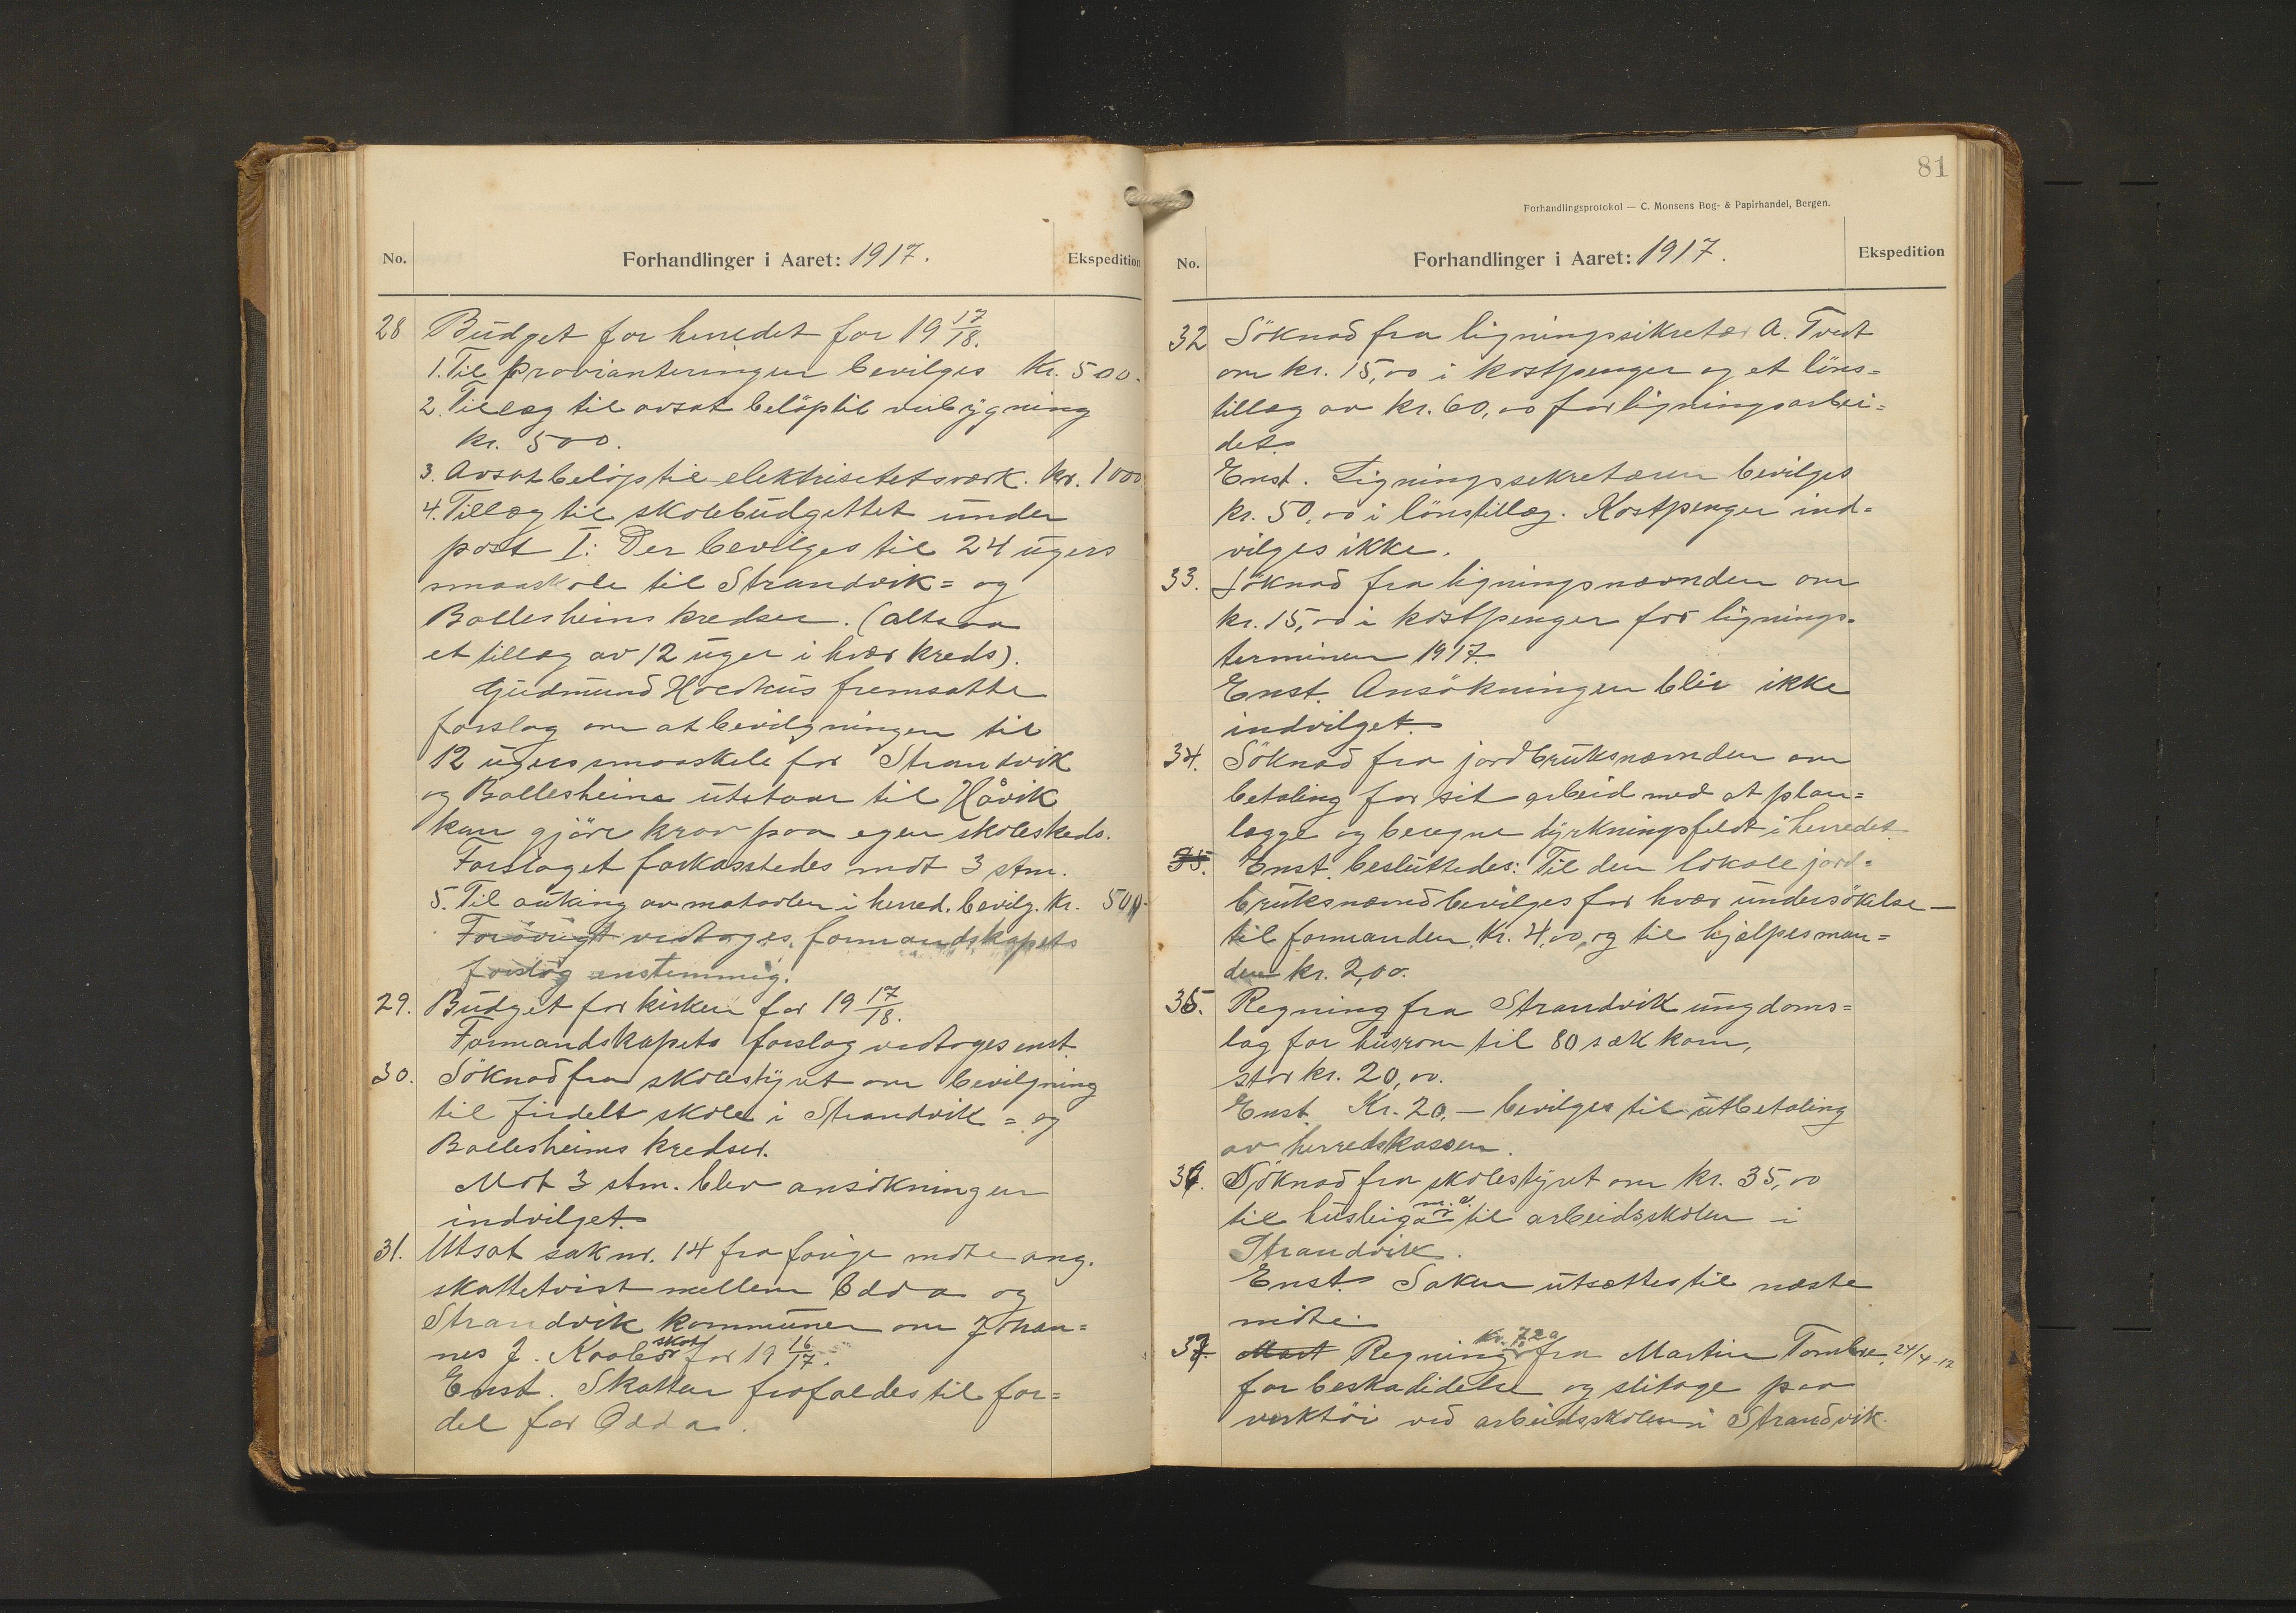 No.
Forhandlinger i Aaret: 1917.
Ekspedition
28 Budget for herredet for 19 17/18.
1. Til provianteringen bevilges Kr. 500.
2. Tillæg til avsat beløp til veibygning
kr. 500.
3. Avsat beløp til elektrisitetsverk. Kr. 1000
4. Tillæg til skolebudgettet under
post I: Der bevilges til 24 ugers
smaaskole til Strandvik= og
Bollesheims kredser. (altsaa
et tillæg av 12 uger i hver kreds).
Gudmund Hoedkus fremsatte
forslag om at bevilgningen til
12 ugers smaaskole for Strandvik
og Bollesheim utstaar til Håvik
kan gjöre krav paa egen skolekreds.
Forslaget forkastedes mot 3 stm.
5. Til auking av matavlen i herred. bevilg. Kr. 500.
Forøvrigt vedtages formandskapets
forslag enstemmig.
29. Budget for kirken for 19 17/18.
Formandskapets forslag vedtoges enst.
30. Söknad fra skolestyret om bevilgning
til firdelt skole i Strandvik = og
Bollesheims kredser.
Mot 3 stm. blev ansökningen
indvilget.
31. Utsat sak nr. 14 fra forige møte ang.
skattetvist mellem Odda og
Strandvik kommuner om Johan=
nes J. skat for 19 16/17.
Enst. Skatten frafaldes til for=
del for Odda.
81
Forhandlingsprotokol — C. Monsens Bog- & Papirhandel, Bergen.
No.
Forhandlinger i Aaret: 1917.
Ekspedition
32 Söknad fra ligningssekretær A. Tvedt
om kr. 15,00 i kostpenger og et löns=
tillæg av kr. 60,00 for ligningsarbei=
det.
Enst. Ligningssekretæren bevilges
kr. 50,00 i lönstillæg. Kostpenger ind=
vilges ikke.
33. Söknad fra ligningsnævnden om
kr. 15,00 i kostpenger for lignings.
terminen 1917.
Enst. Ansökningen blir ikke
indvilget.
34. Söknad fra jordbruksnævnden om
betaling for sit arbeid med at plan=
lægge og beregne dyrkningsfeldt i herredet.
35. Enst. besluttedes: Til den lokale jord=
bruksnævnd bevilges for hver undersökelse —
til formanden Kr. 4,00, og til hjælpesman=
den kr. 2,00.
35. Regning fra Strandvik ungdoms=
lag for husrom til 80 sæk korn,
stor kr. 20,00.
Enst. Kr. 20,— bevilges til utbetaling
av herredskassen.
36. Söknad fra skolestyret om kr. 35,00
til husleiga m. v. til arbeidsskolen i
Strandvik.
Enst. Saken utsættes til næste
møte.
37. Mart Regning Kr. 7,20 fra Martin Tombre, 24/4-12
for beskadidelse og slitage paa
verktöi ved arbeidsskolen i Strandvik.